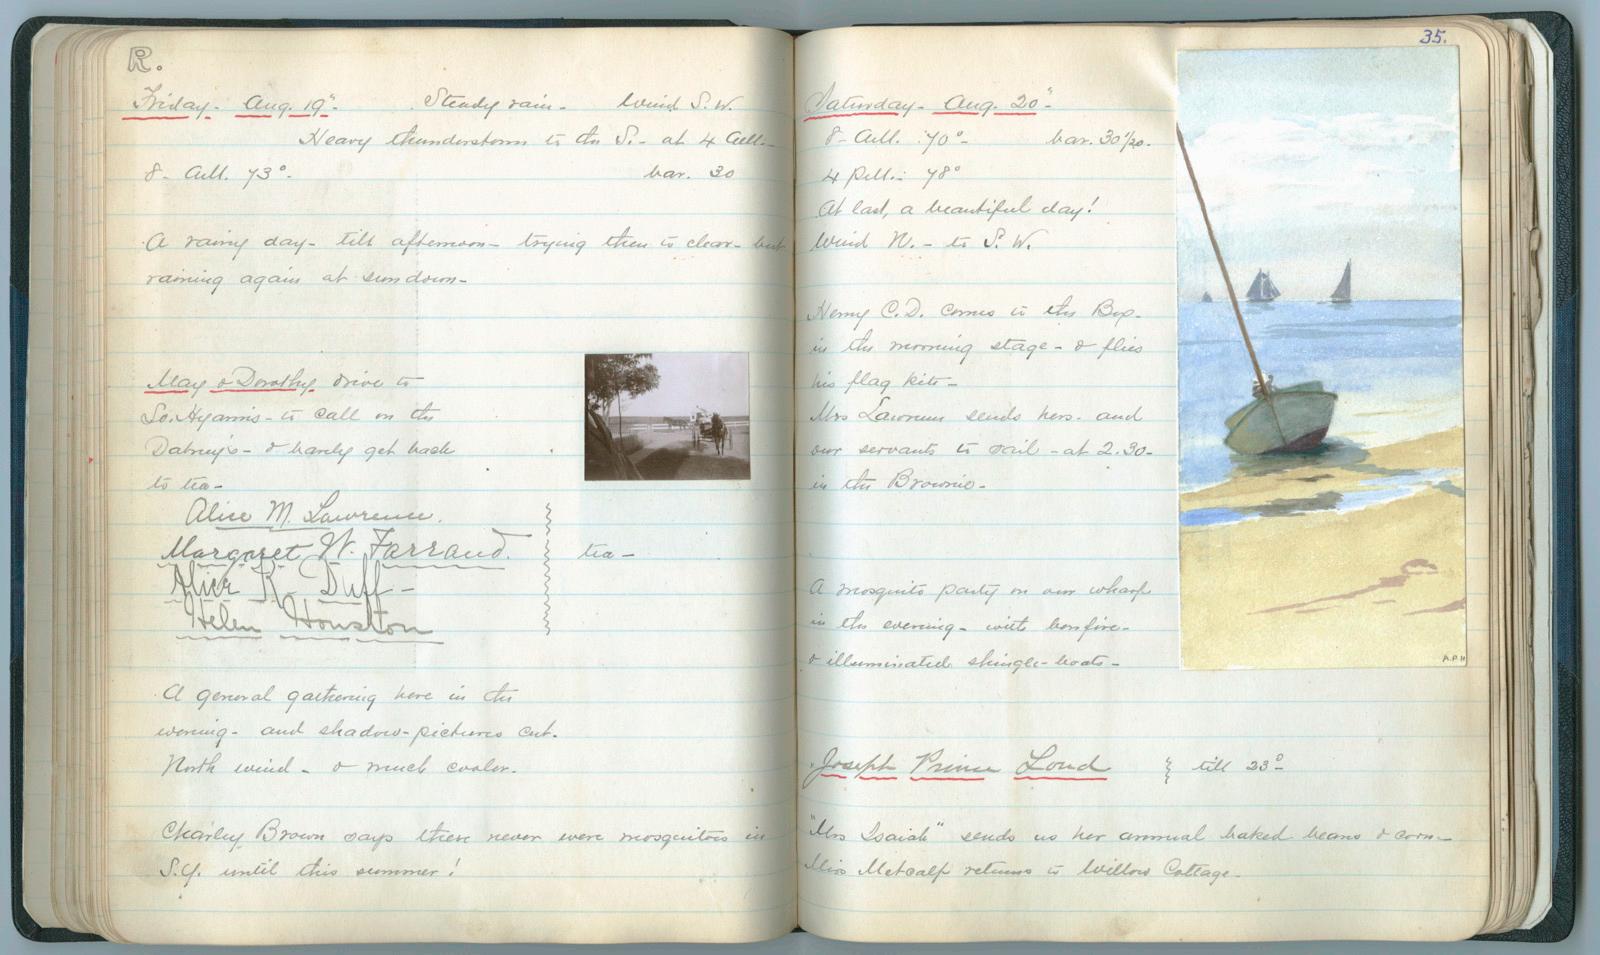 R.
Friday - Aug. 19th. Steady rain - Wind S.W.
Heavy thunderstorm to the S. - at 4 A.M. -
8 - A.M. 73° - bar. 30
A rainy day - till afternoon - trying then to clear - but
raining again at sundown -
May & Dorothy drive to
So. Hyannis - to call on the
- & barely get back
to tea -
Alice M. Lawrence.
Margaret W. Farrand.
Alice K. Duff -
Helen Houston
tea -
A general gathering here in the
evening - and shadow-pictures cut.
North wind - & much cooler.
Charley Brown says there never were mosquitoes in
S.Y. until this summer!
35.
Saturday - Aug. 20th -
8 - A.M. 70° - bar. 30 1/20.
4 P.M. - 78°
At last, a beautiful day!
Wind N. - to S.W.
Henry C.D. comes to the Box.
in the morning stage - & flies
his flag kite -
Mrs Lawrence sends hers - and
our servants to sail - at 2.30 -
in the Brownie -
A mosquito party on our wharf
in the evening - with bonfire -
& illuminated shingle-boats -
A.P.H
Joseph Prince Loud till 23d -
"Mrs Isaiah" sends us her annual baked beans & corn -
Miss Metcalf returns to Willow Cottage -